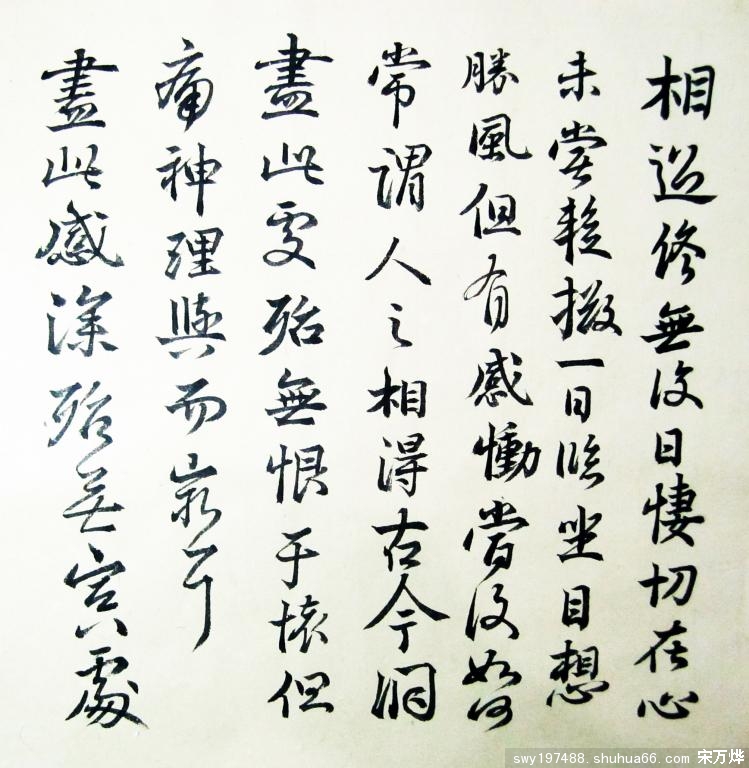 相過終無復日悽切在心
未嘗暫掇一日臨坐目想
勝風但有感慟當復如何
常謂人之相得古今洞
盡此處殆無恨于懷但
痛神理與而窮耳
盡此感深殆無冥處
swy197488.shuhua66.com 宋万烨